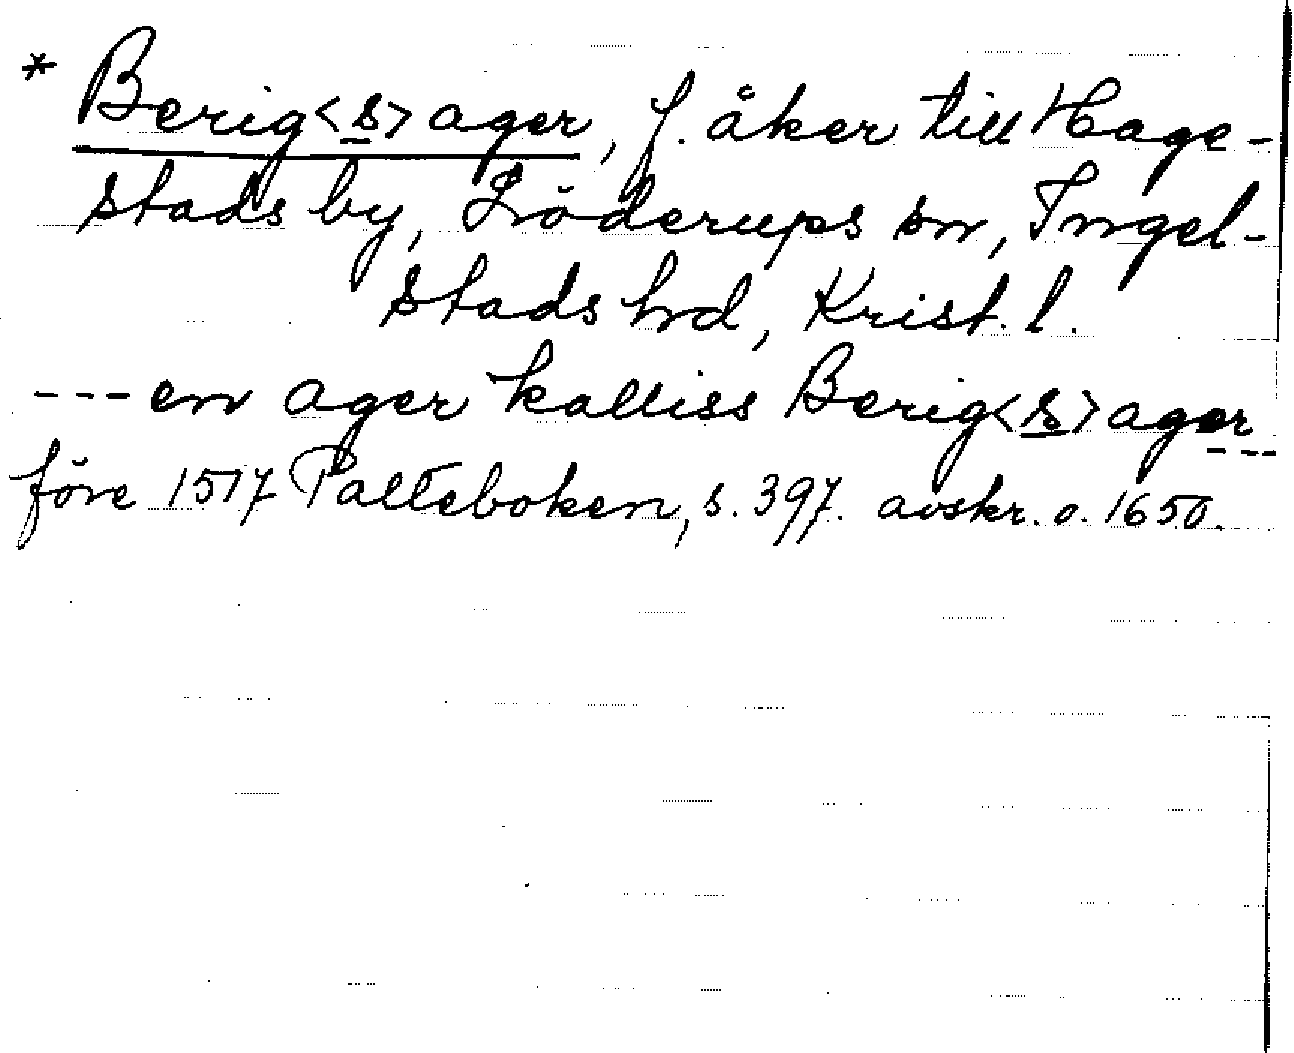 * Berig<s>ager, f. åker till Hage-
stads by, Löderups sn, Ingel-
stads hrd, Krist. l.
---en ager kalliss Berig<s>ager---
före 1517 Palteboken, s. 397. avskr. o. 1650.